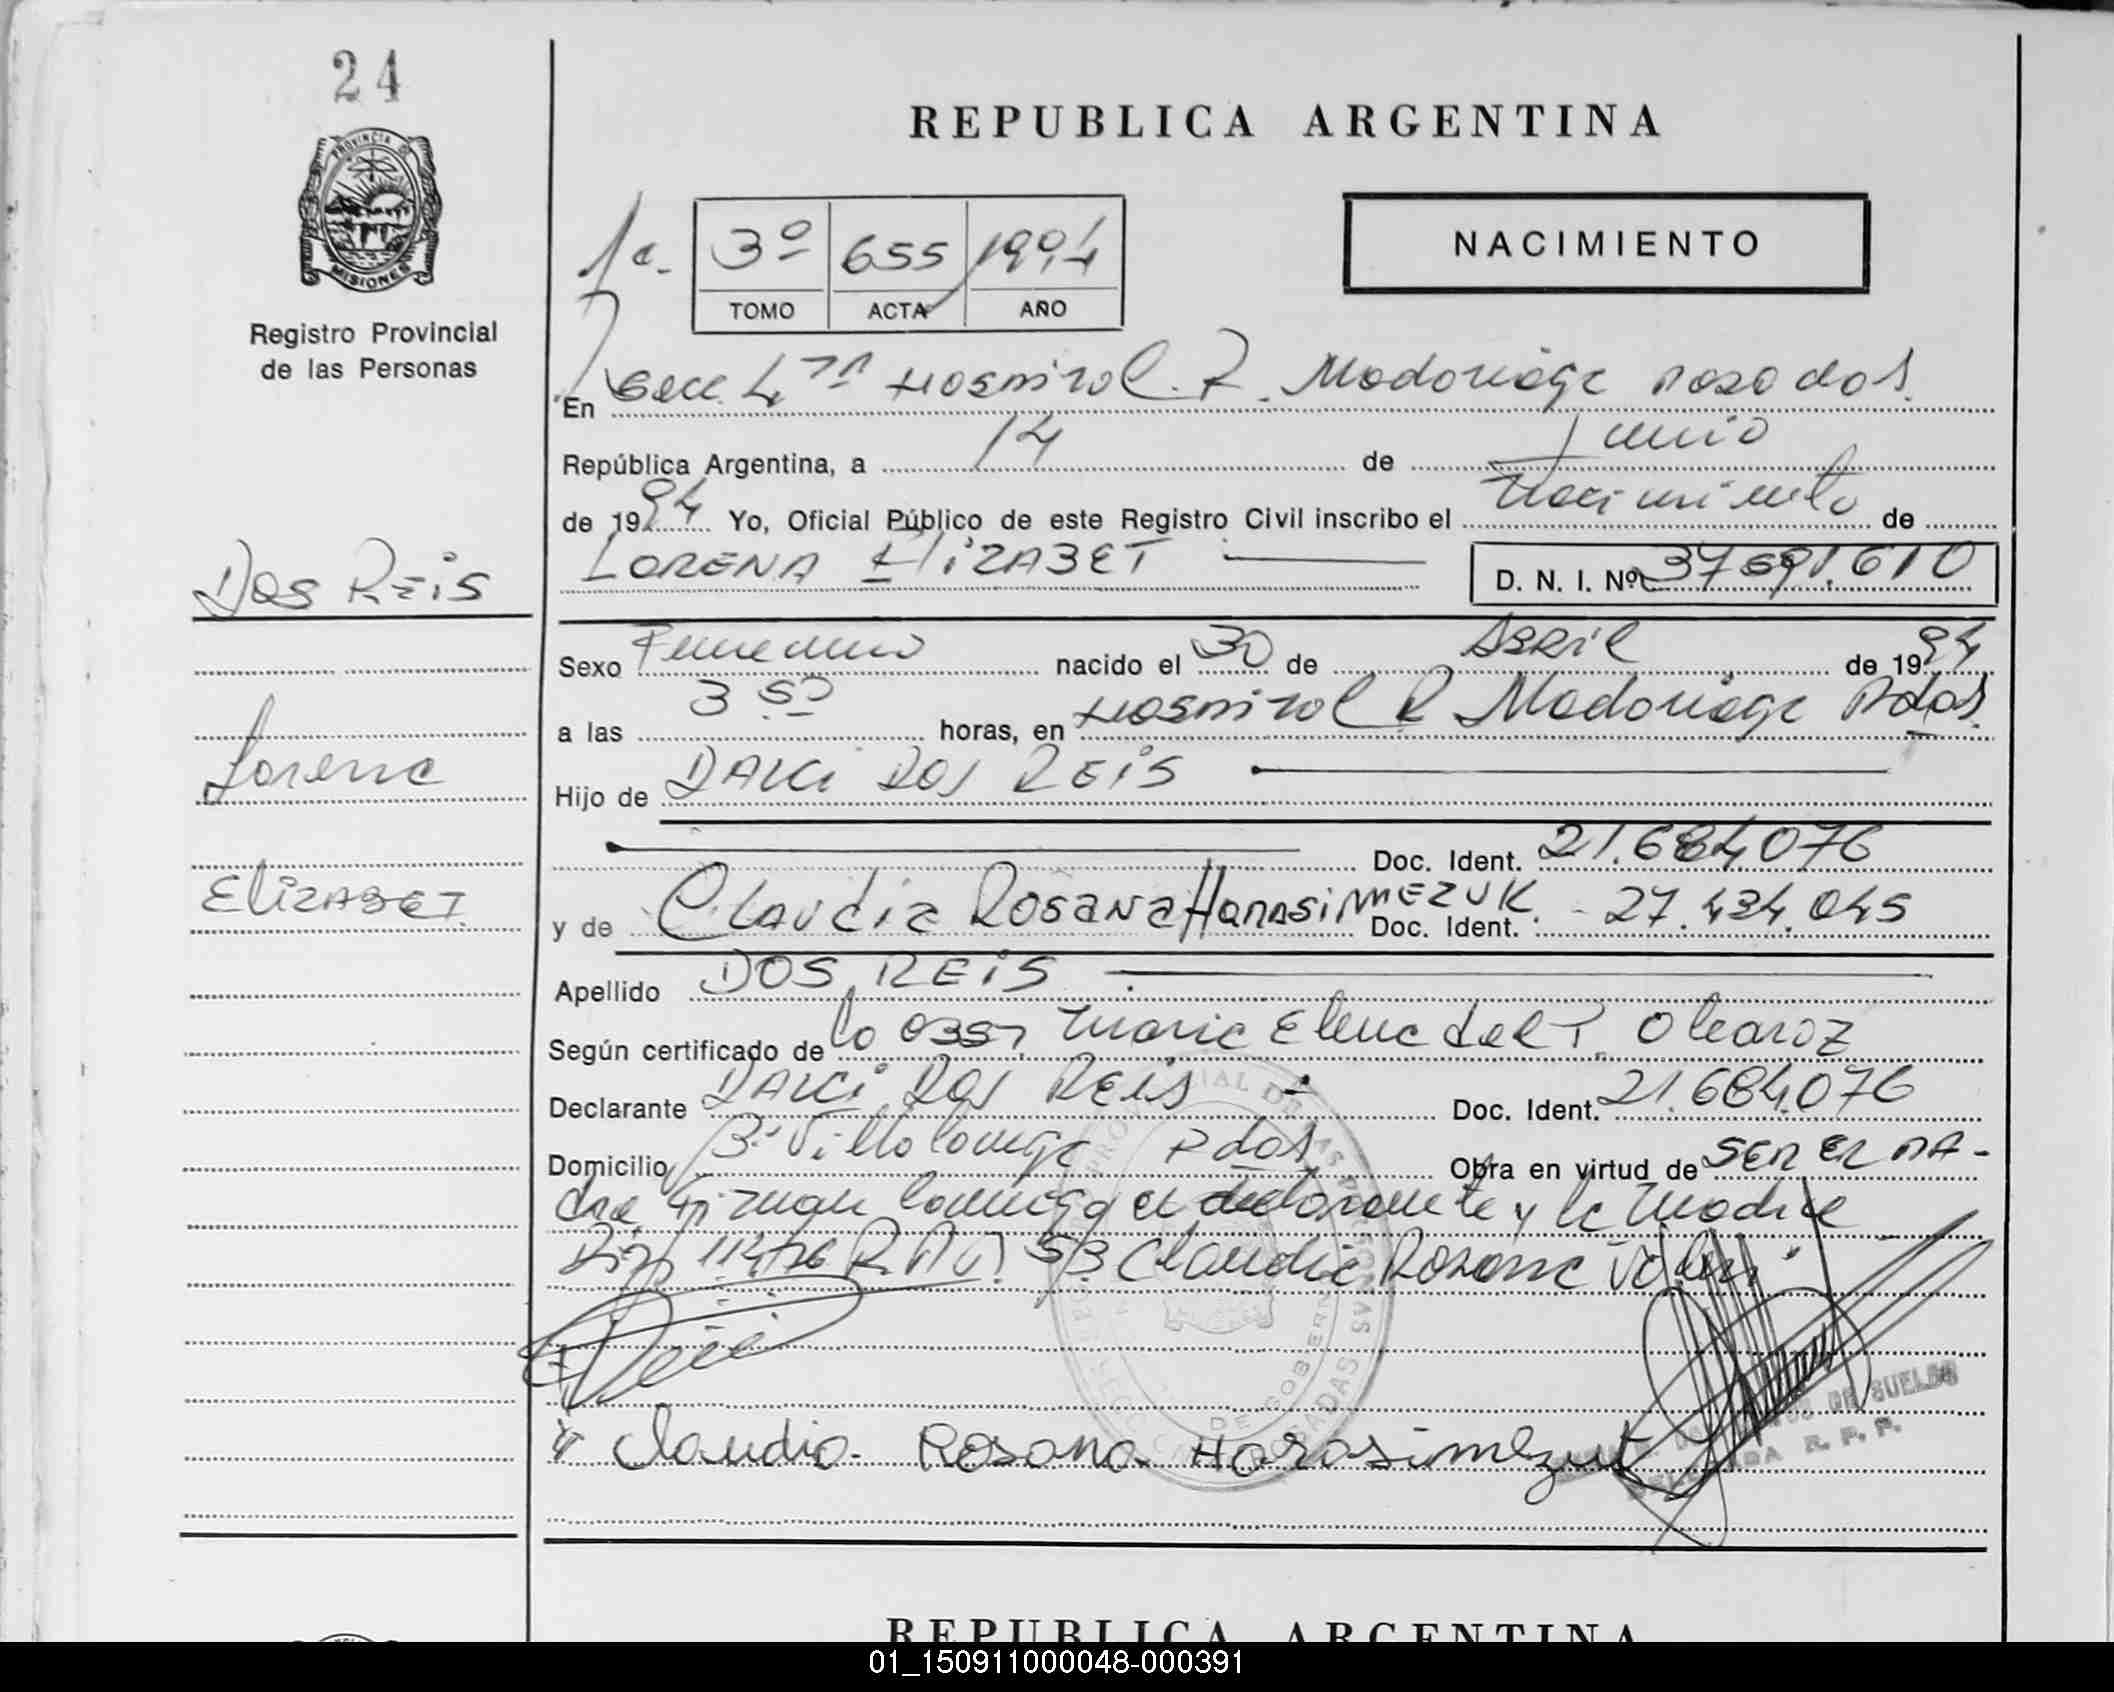 24
PROVINCIA DE
MISIONES
Registro Provincial
de las Personas
REPUBLICA ARGENTINA
NACIMIENTO
3º 655 1994
TOMO ACTA AÑO
En Secc 4ta Hospital R. Madariaga Posadas.
República Argentina, a 14 de Junio
de 1994 Yo, Oficial Público de este Registro Civil inscribo el Nacimiento de
LORENA ElIZABET D. N. I. Nº 37.591.610
Dos Reis
Lorena
ElIZABET
Sexo Femenino nacido el 30 de Abril de 1994
a las 3 50 horas, en Hospital R Madariaga Pdas.
Hijo de DALCI DOS REIS
Doc. Ident. 21.684.076
y de Claudia Rosana Harasimezuk. Doc. Ident. 27.434.045
Apellido DOS REIS
Según certificado de la Obst. Maria Elena del P. Olearoz
Declarante DALCI Dos Reis Doc. Ident. 21.684.076
Domicilio Bº Villalonga Pdas Obra en virtud de SER EL PA-
dre Firman conmigo el declarante y la madre
R.P.P. Claudia Rosana
Claudia Rosana Harasimezuk
DE SUELDOS
R. P. P.
REPUBLICA ARGENTINA
01_150911000048-000391